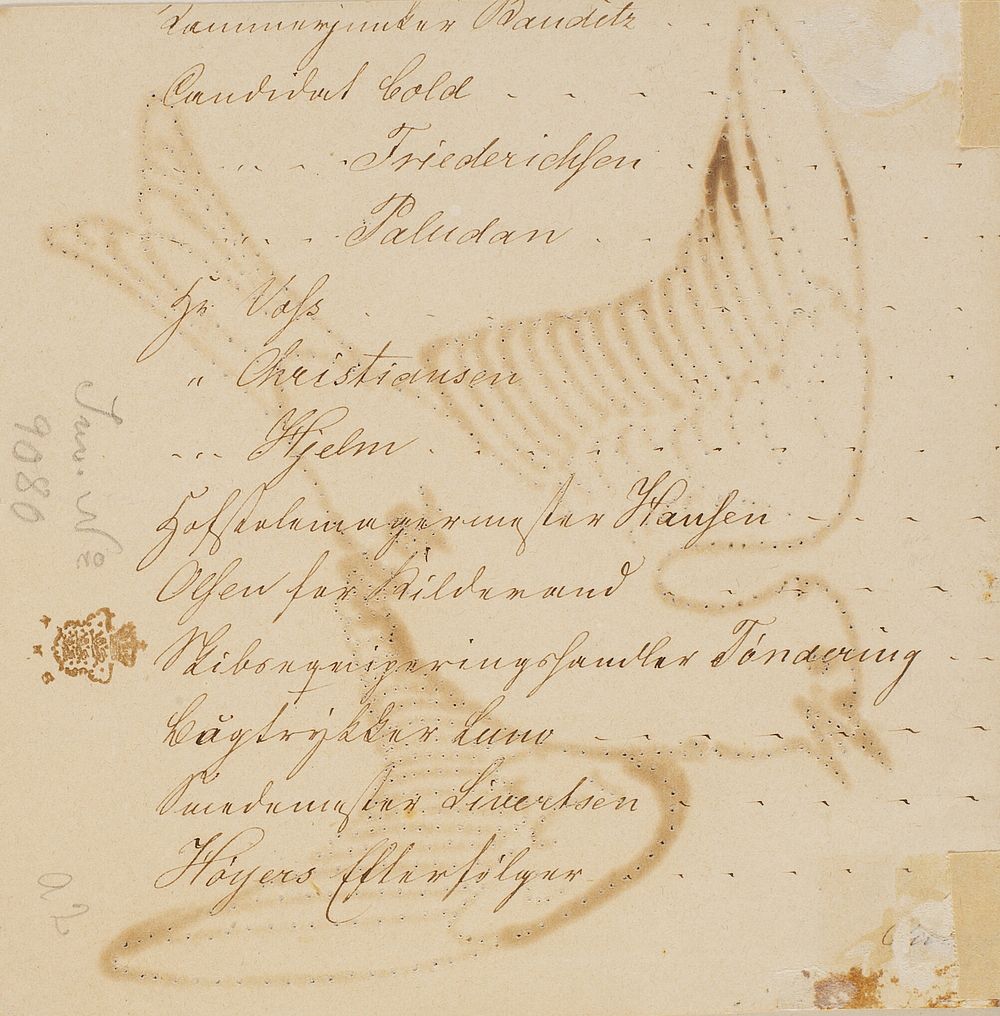 Kammerjunker Bauditz
Candidat Cold
" " Friederichsen
" " Paludan
Hr Voss
" Christiansen
" " Hjelm
Hofstolemagermester Hansen
Olsen for Kildevand
Skibsequiperingshandler Tøndering
Bogtrykker Luno
Smedemester Sivertsen
Høyers Efterfølger
Inv. №
9086
a2